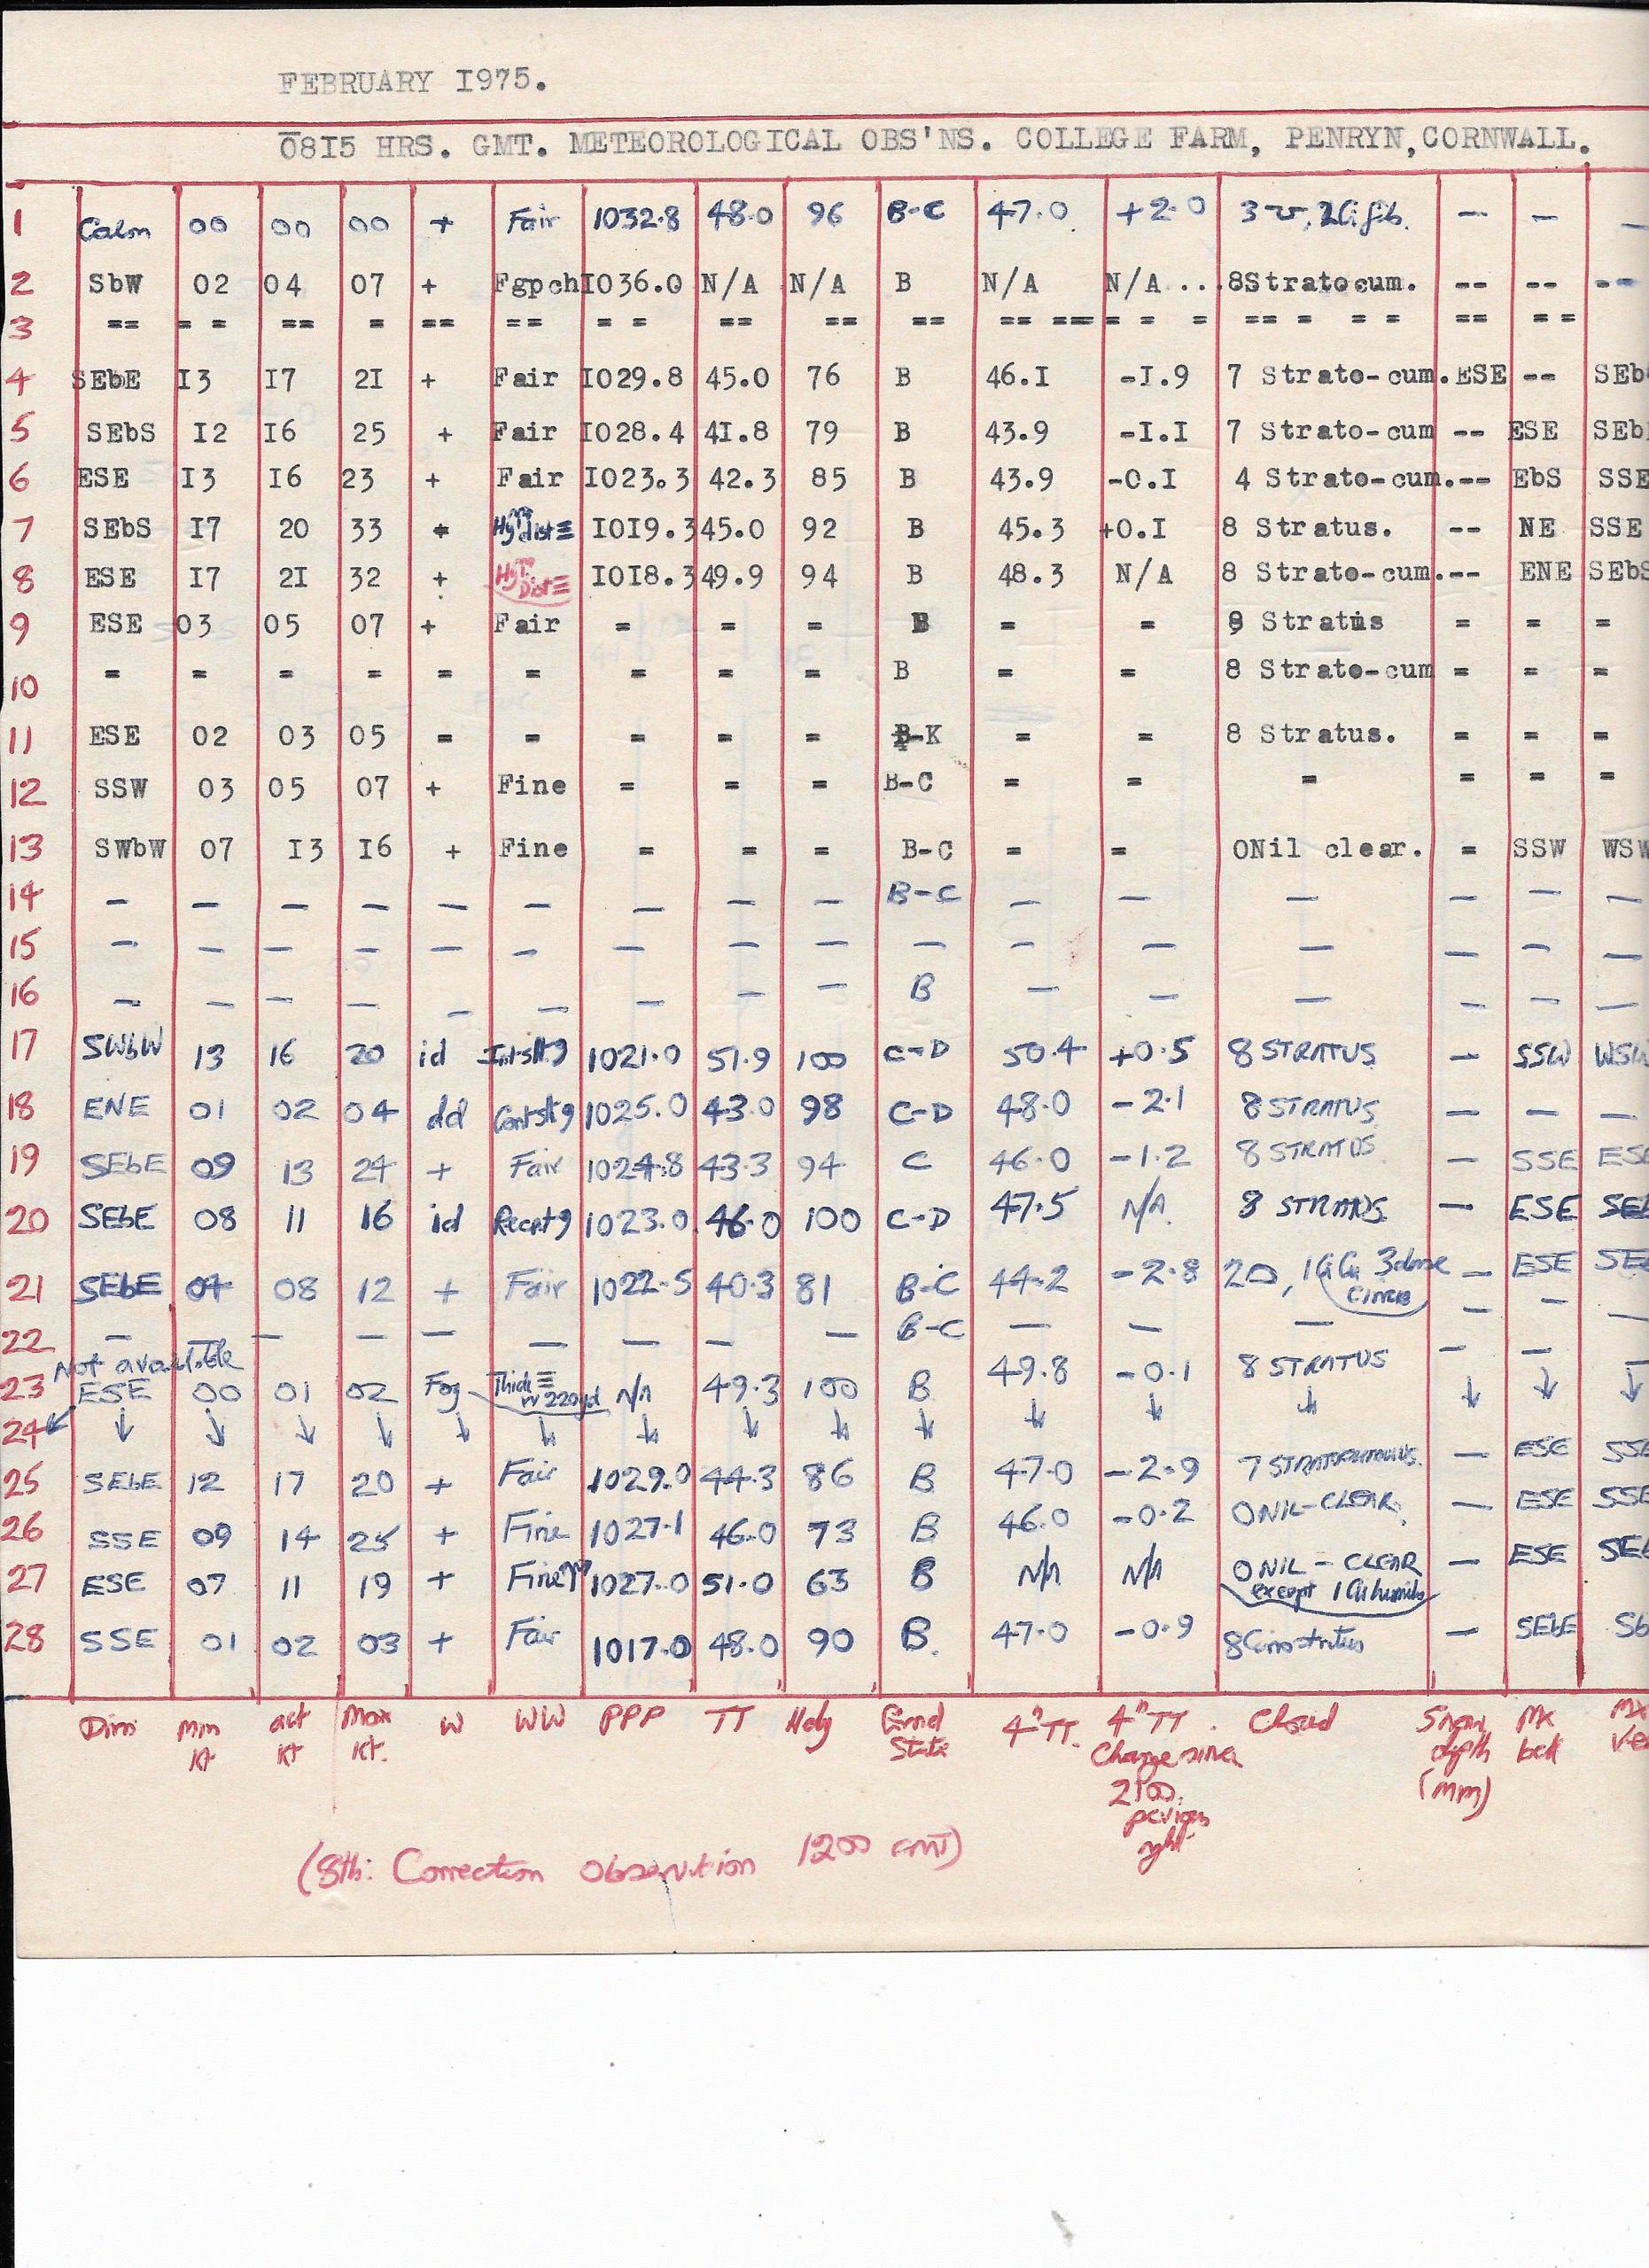 FEBRUARY I975.
08I5 HRS. GMT. METEOROLOGICAL OBS'NS. COLLEGE FARM, PENRYN, CORNWALL.
1 Calm 00 00 00 + Fair 1032.8 48.0 96 B-C 47.0 +2.0 — — —
2 SbW 02 04 07 + Fgpch I036.0 N/A N/A B N/A N/A ... 8Stratocum. -- -- --
3 == = = == = == == = = == == == == == = = = == = = = == = =
4 SEbE I3 I7 2I + Fair I029.8 45.0 76 B 46.I -I.9 7 Strato-cum. ESE -- SEb
5 SEbS I2 I6 25 + Fair I028.4 4I.8 79 B 43.9 -I.I 7 Strato-cum -- ESE SEb
6 ESE I3 I6 23 + Fair I023.3 42.3 85 B 43.9 -0.I 4 Strato-cum. -- EbS SSE
7 SEbS I7 20 33 + dist≡ I0I9.3 45.0 92 B 45.3 +0.I 8 Stratus. -- NE SSE
8 ESE I7 2I 32 + Dist≡ I0I8.3 49.9 94 B 48.3 N/A 8 Strato-cum. -- ENE SEbS
9 ESE 03 05 07 + Fair = = = B = = Stratus = = =
10 = = = = = = = = = B = = 8 Strato-cum = = =
11 ESE 02 03 05 = = = = = B-K = = 8 Stratus. = = =
12 SSW 03 05 07 + Fine = = = B-C = = = = = =
13 SWbW 07 I3 I6 + Fine = = = B-C = = 0Nil clear. = SSW WSW
14 — — — — — — — — — B-C — — — — — —
15 — — — — — — — — — — — — — — — —
16 — — — — — — — — — B — — — — — —
17 SWbW 13 16 20 id 1021.0 51.9 100 C-D 50.4 +0.5 8 STRATUS — SSW WSW
18 ENE 01 02 04 dd 1025.0 43.0 98 C-D 48.0 -2.1 8 STRATUS — — —
19 SEbE 09 13 24 + Fair 1024.8 43.3 94 C 46.0 -1.2 8 STRATUS — SSE ESE
20 SEbE 08 11 16 id 1023.0 46.0 100 C-D 47.5 N/A 8 STRATUS — ESE SEb
21 SEbE 04 08 12 + Fair 1022.5 40.3 81 B-C 44.2 -2.8 3 dense — ESE SEb
22 — — — — — — — — — B-C — — — — — —
Not available
23 ESE 00 01 02 Fog Thick≡ 220yd N/A 49.3 100 B 49.8 -0.1 8 STRATUS — — —
24 ↙ ↓ ↓ ↓ ↓ ↓ ↓ ↓ ↓ ↓ ↓ ↓ ↓ ↓ ↓ ↓ ↓
25 SEbE 12 17 20 + Fair 1029.0 44.3 86 B 47.0 -2.9 7 STRATOCUMULUS — ESE SSE
26 SSE 09 14 25 + Fine 1027.1 46.0 73 B 46.0 -0.2 0 NIL-CLEAR. — ESE SSE
27 ESE 07 11 19 + Fine 1027.0 51.0 63 B N/A N/A 0 NIL - CLEAR — ESE SEb
except 1 Cu humilis
28 SSE 01 02 03 + Fair 1017.0 48.0 90 B. 47.0 -0.9 8 Cirrostratus — SEbE Sb
Dirn Min kt act kt Max kt. W WW PPP TT Hdy Grnd State 4" TT. 4" TT. Change since 2100 previous night Cloud Snow depth (mm) Mx
(8th: Correction observation 1200 GMT)